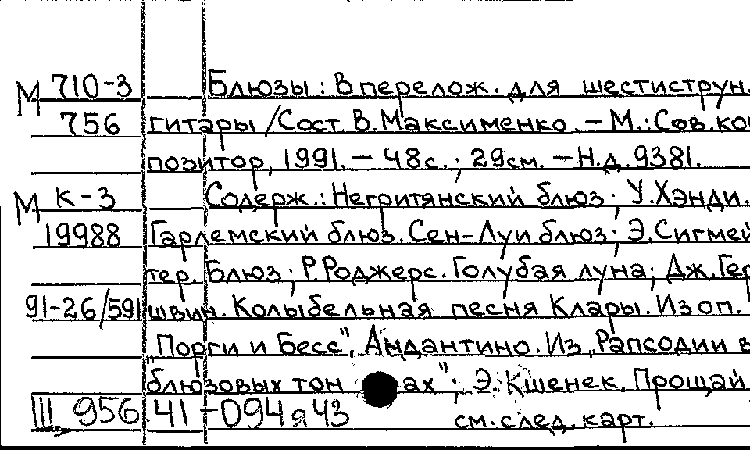 М 710-3 Блюзы: В перелож. для шестиструн.
756 гитары /Сост. В.Максименко. – М.: Сов.ком
позитор, 1991. – 48с.; 29см. – Н.д. 9381.
М К-3 Содерж.: Негритянский блюз; У.Хэнди.
19988 Гарлемский блюз. Сен-Луи блюз; Э.Сигмей
тер. Блюз; Р.Роджерс. Голубая луна; Дж.Гер
91-26/591 швин. Колыбельная песня Клары. Из оп.
"Порги и Бесс", Андантино. Из „Рапсодии в
блюзовых тонах"; Э.Кшенек. Прощай,
III 956.41-094я43 см.след. карт.